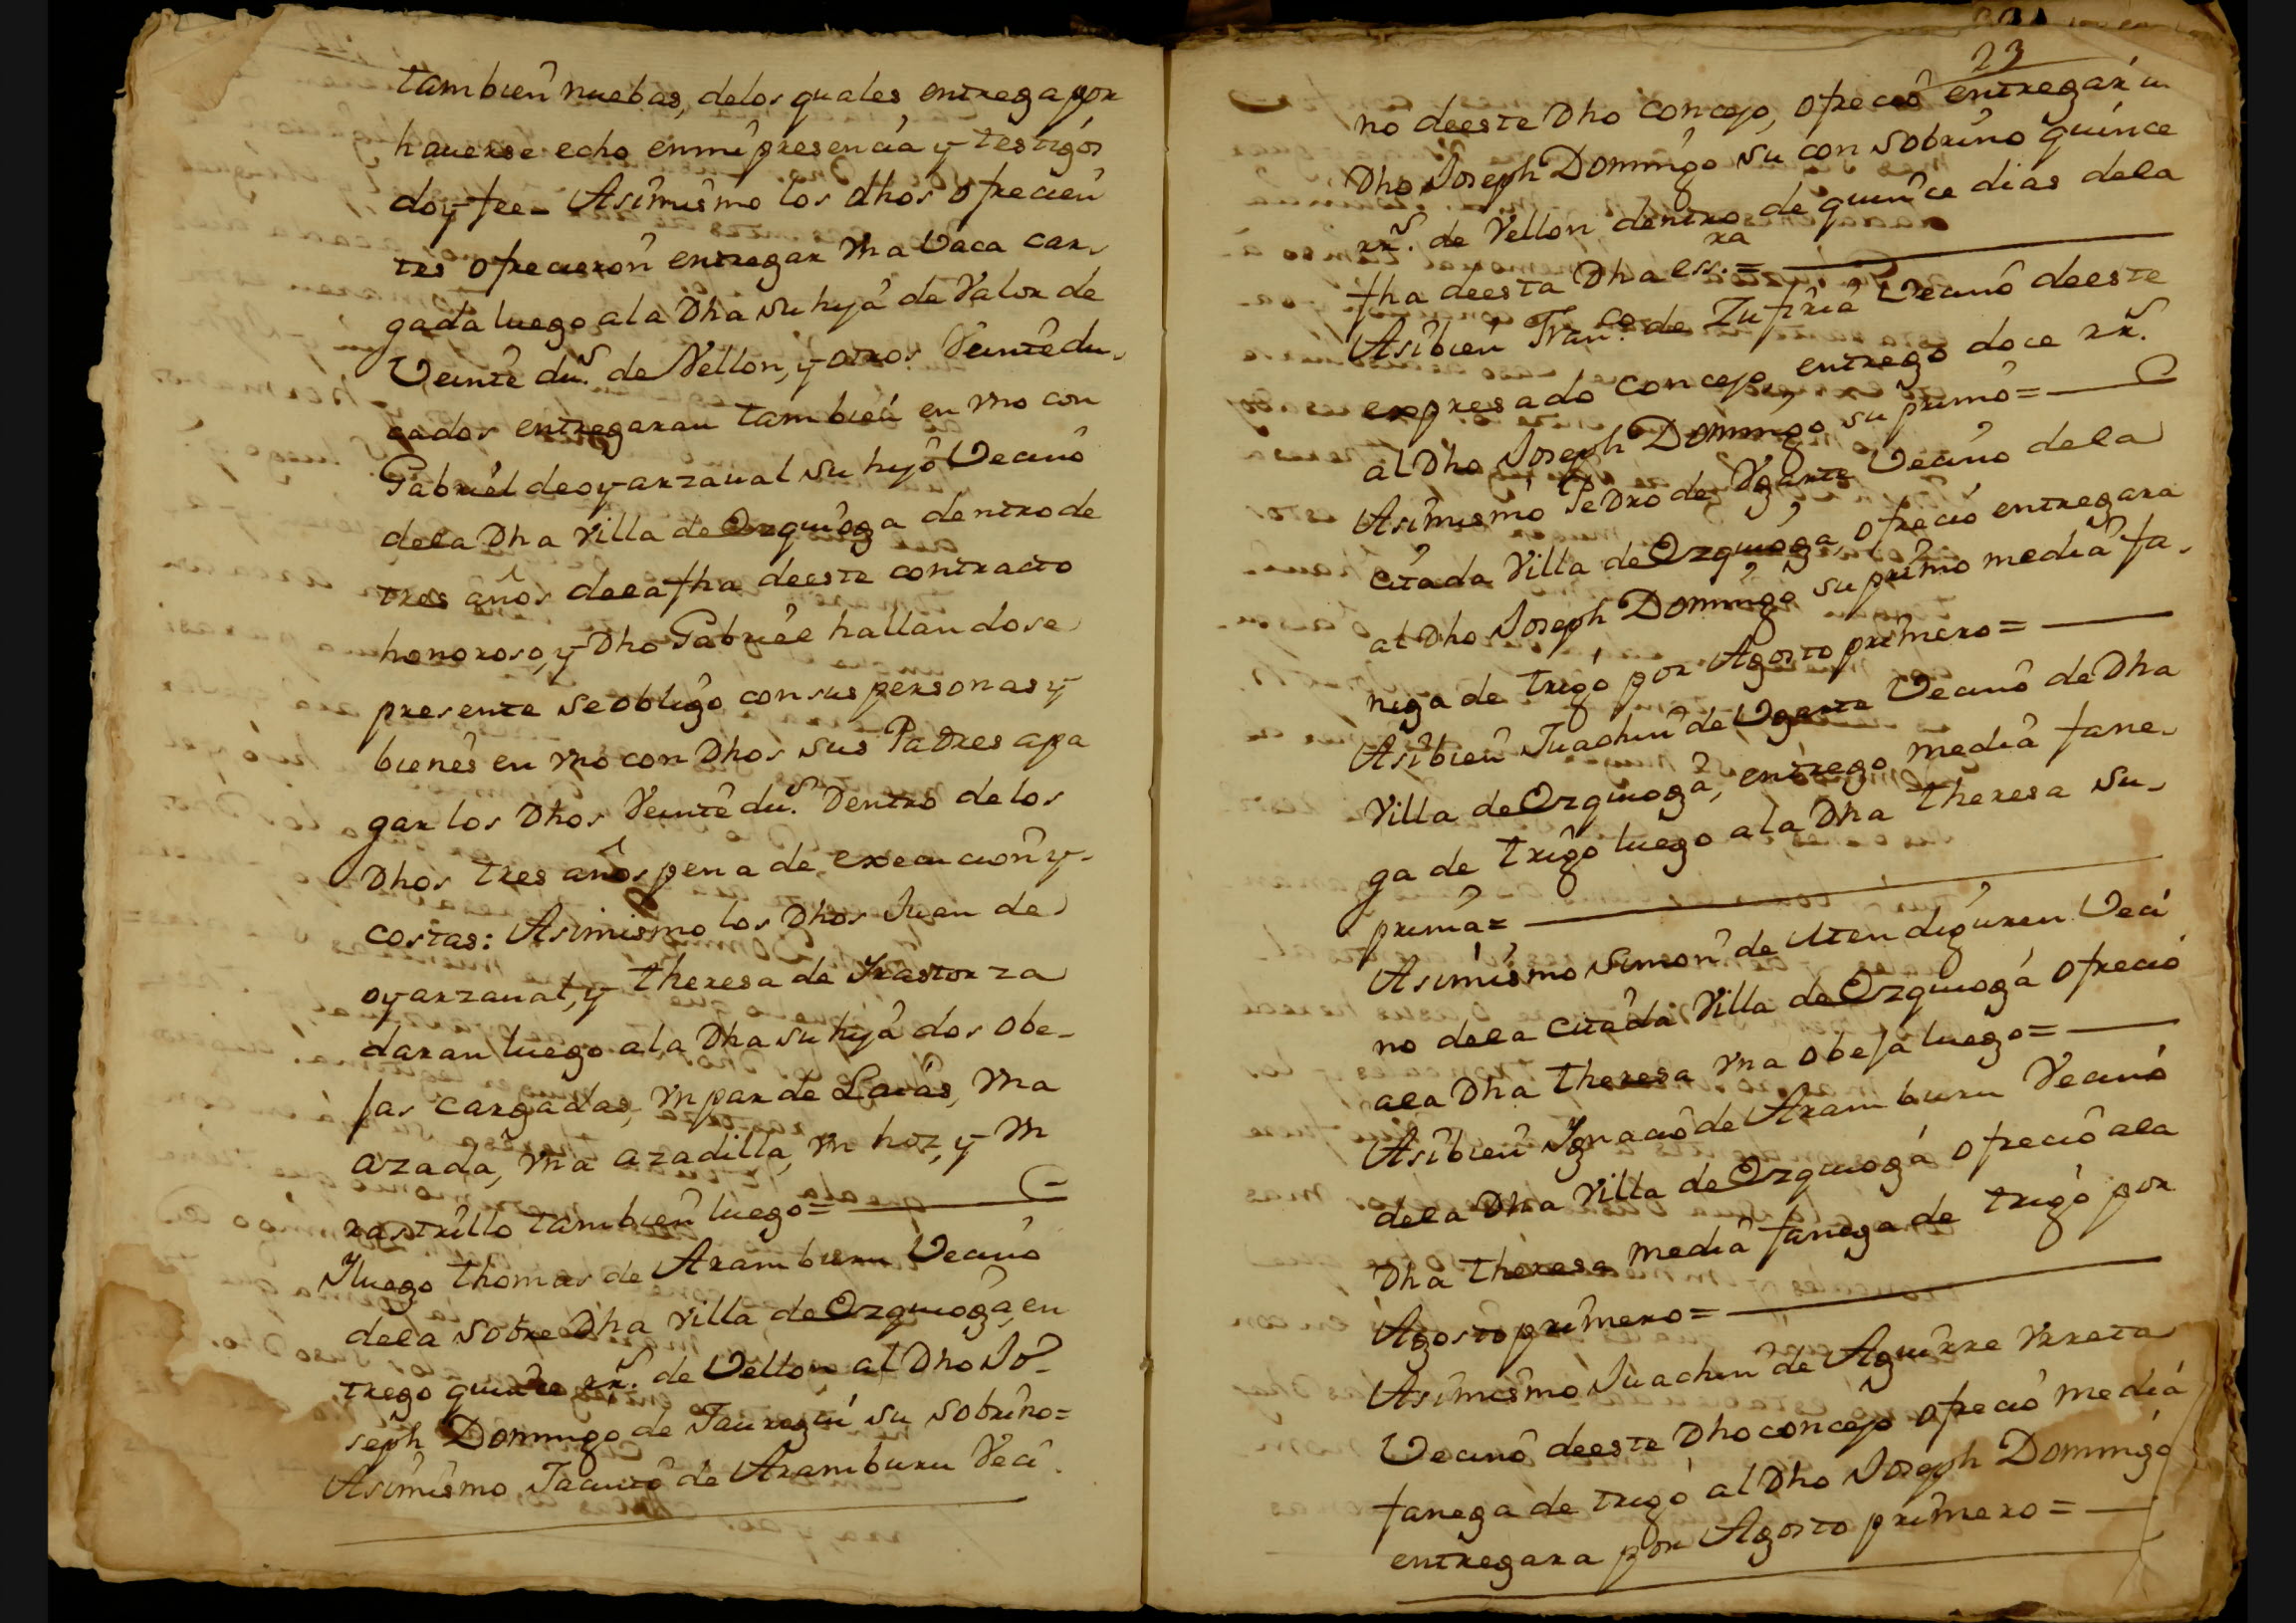 tambien nuebas, delos quales entrega por
hauerse echo enmi presencia y testigos
doy fee - Asimismo los dhos ofrecien
tes ofrecieron entregar vna Vaca car-
gada luego ala Dha su hija de Valor de
Veinte dus. de Vellon, y otros Veinte du-
cados entregaran tambien en vno con
Gabriel de oyarzaual su hijo Vecino
dela Dha villa de Ozquioga dentro de
tres años dela fha deeste contracto
honoroso, y Dho Gabriel hallandose
presente se obligo con sus personas y
bienes en vno con Dhos sus Padres apa
gar los Dhos Veinte dus. Dentro de los
Dhos tres años pena de execucion y-
costas: Asimismo los Dhos Juan de
oyarzaual, y theresa de Yrastorza
daran luego ala Dha su hija dos obe-
jas cargadas, vn par de Laias, vna
azada, vna azadilla, vn hoz, y vn
rastrillo tambien luego=
Yluego thomas de Aramburu Vecino
dela sobre Dha villa de Ozquioga, en
trego quince rrs. de Vellon al Dho Jo-
seph Domingo de Jauregui su sobrino=
Asimismo Jacinto de Aramburu Veci
23
no deeste Dho concejo, ofrecio entregar in
Dho Joseph Domingo su con sobrino quince
rrs. de Vellon dentro de quince dias dela
fha deesta Dha ess.ra =
Asibien Fran.co de Zufiria Vecino deeste
expresado concejo, entrego doce rrs.
al Dho Joseph Domingo su primo=
Asimismo Pedro de Vgarte Vecino dela
citada Villa de Ozquioga, ofrecio entregara
al Dho Joseph Domingo su primo media fa-
nega de trigo por Agosto primero=
Asibien Juachin de Ugarte Vecino de Dha
Villa de Ozquioga, entrego media fane-
ga de trigo luego ala Dha theresa su-
prima=
Asimismo Simon de Yten diguren Veci
no dela citada Villa de Ozquioga ofrecio
ala Dha theresa vna obeja luego=
Asibien Ygnacio de Aramburu Vecino
dela Dha Villa de Ozquioga ofrecio ala
Dha theresa media fanega de trigo por
Agosto primero=
Asimismo Juachin de Aguirre Vrreta
Vecino deeste Dho concejo ofrecio media
fanega de trigo al Dho Joseph Domingo
entregara por Agosto primero=